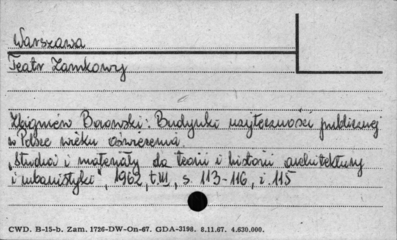 Warszawa
Teatr Zamkowy
Zbigniew Borowski: Budynki użyteczności publicznej
w Polsce wieku oświecenia.
„Studia i materiały do teorii i historii architektury
i urbanistyki", 1962, t III, s. 113-116, i. 115
CWD. B-15-b. Zam. 1726-DW-On-67. GDA-3198. 8.11.67. 4.630.000.